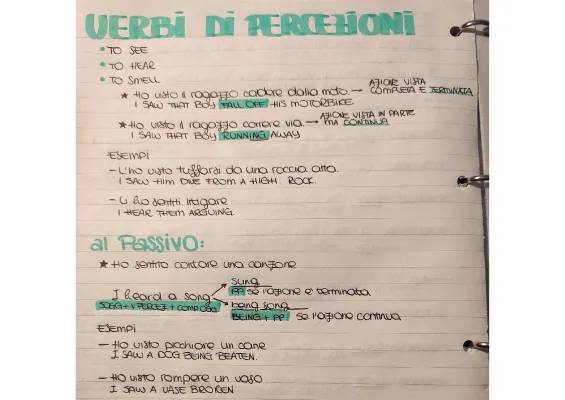 VERBI DI PERCEZIONI
• TO SEE
• TO HEAR
• TO SMELL
★ Ho visto il ragazzo cadere dalla moto → AZIONE VISTA COMPLETA E TERMINATA
I SAW THAT BOY FALL OFF HIS MOTORBIKE
★ Ho visto il ragazzo correre via. → AZIONE VISTA IN PARTE MA CONTINUA
I SAW THAT BOY RUNNING AWAY
ESEMPI
- L'ho visto tuffarsi da una roccia alta.
I SAW HIM DIVE FROM A HIGH ROCK.
- Li ho sentiti litigare
I HEAR THEM ARGUING.
al Passivo:
★ Ho sentito cantare una canzone
I heard a song
sung
PP se l'azione è terminata
SOGG + V PERCEZ + COMPL OGG
being song
BEING + PP se l'azione continua.
ESEMPI
- Ho visto picchiare un cane
I SAW A DOG BEING BEATEN.
- Ho visto rompere un vaso
I SAW A VASE BROKEN